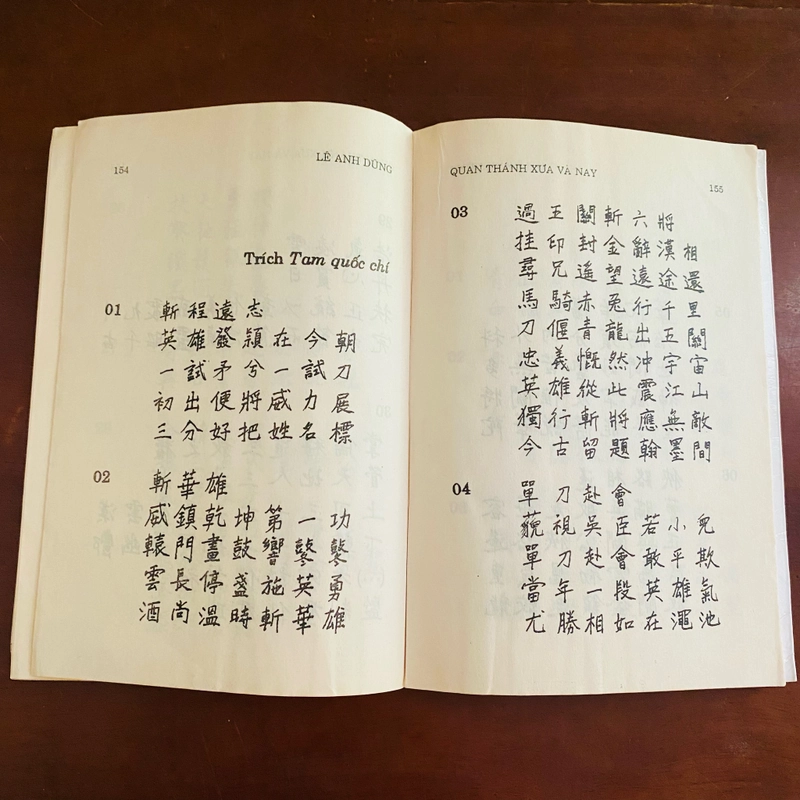 154
LÊ ANH DŨNG
Trích Tam quốc chí
01 斬程遠志
英雄發穎在今朝
一試矛兮一試刀
初出便將威力展
三分好把姓名標
02 斬華雄
威鎮乾坤第一功
轅門畫鼓響鼕鼕
雲長停盞施英勇
酒尚溫時斬華雄
QUAN THÁNH XƯA VÀ NAY
155
03 過五關斬六將
挂印封金辭漢相
尋兄遙望遠途還
馬騎赤兔行千里
刀偃青龍出五關
忠義慨然冲宇宙
英雄從此震江山
獨行斬將應無敵
今古留題翰墨間
04 單刀赴會
藐視吳臣若小兒
單刀赴會敢平欺
當年一段英雄氣
尤勝相如在澠池